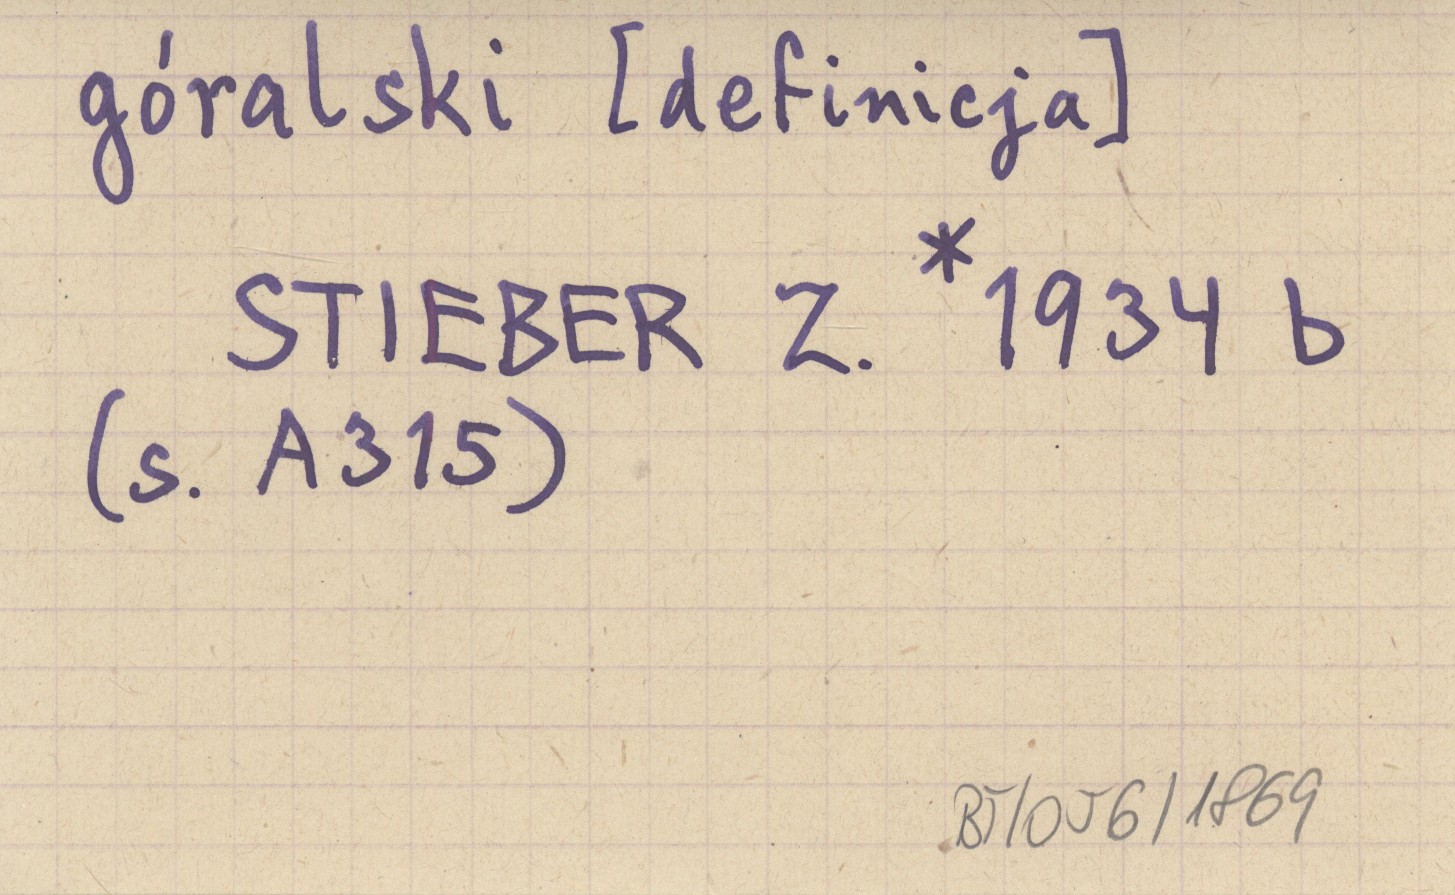 górалski [definicja]
STIEBER Z. *1934 b
(s. A315)
BJ/056/1869